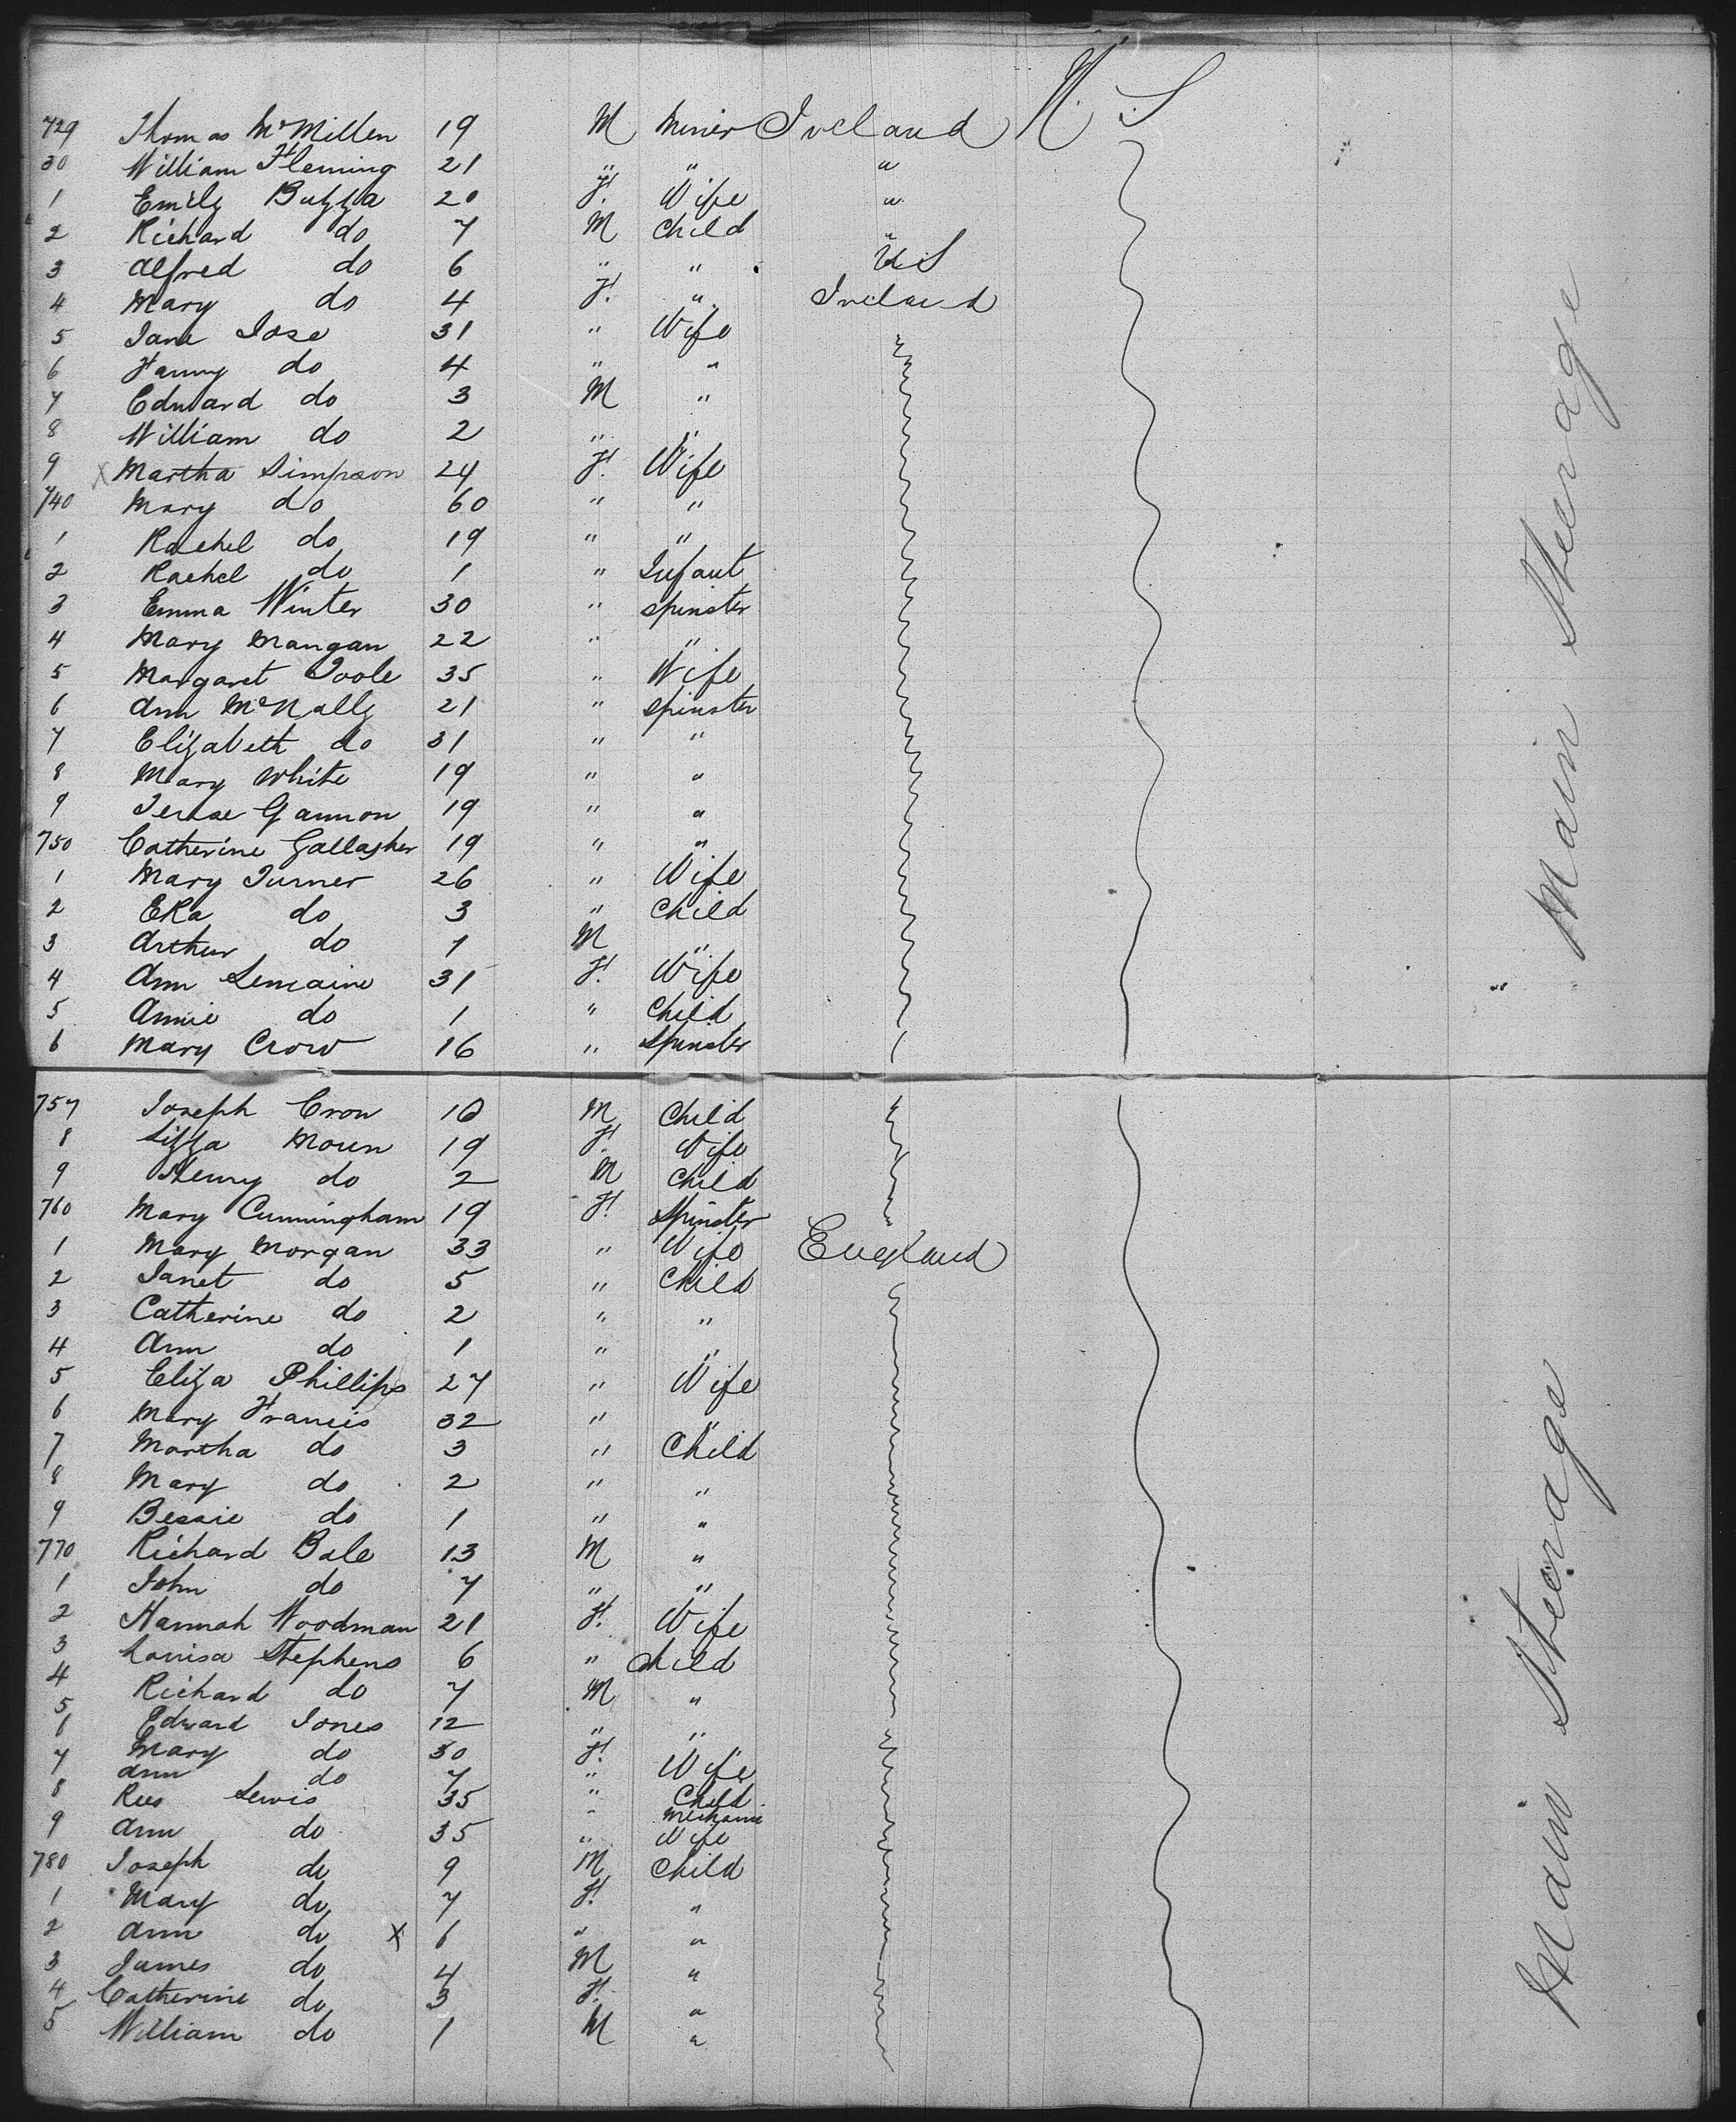 729 Thomas McMillen 19 M Miner Ireland U.S
30 William Fleming 21 " " "
1 Emily Buzza 20 F. Wife "
2 Richard do 7 M Child "
3 Alfred do 6 " " US
4 Mary do 4 F. " Ireland
5 Jane Jose 31 " Wife
6 Fanny do 4 " "
7 Edward do 3 M "
8 William do 2 " "
9 X Martha Simpson 24 F. Wife
740 Mary do 60 " "
1 Rachel do 19 " "
2 Rachel do 1 " Infant
3 Emma Winter 30 " Spinster
4 Mary Mangan 22 " "
5 Margaret Toole 35 " Wife
6 Ann McNally 21 " Spinster
7 Elizabeth do 31 " "
8 Mary White 19 " "
9 Gannon 19 " "
750 Catherine Gallagher 19 " "
1 Mary Turner 26 " Wife
2 do 3 " Child
3 Arthur do 1 M "
4 Ann Lemaine 31 F. Wife
5 Annie do 1 " Child
6 Mary Crow 16 " Spinster
Main Steerage
757 Joseph Crow 10 M Child
8 Lizza 19 F. Wife
9 Henry do 2 M Child
760 Mary Cunningham 19 F. Spinster
1 Mary Morgan 33 " Wife England
2 Janet do 5 " Child
3 Catherine do 2 " "
4 Ann do 1 " "
5 Eliza Phillips 27 " Wife
6 Mary Francis 32 " "
7 Martha do 3 " Child
8 Mary do 2 " "
9 Bessie do 1 " "
770 Richard Bale 13 M "
1 John do 7 " "
2 Hannah Woodman 21 F. Wife
3 Louisa Stephens 6 " Child
4 Richard do 7 M "
5 Edward Jones 12 " "
6 Mary do 30 F. Wife
7 Ann do 7 " Child
8 Rees Lewis 35 " Mechanic
9 Ann do 35 " Wife
780 Joseph do 9 M Child
1 Mary do 7 F. "
2 Ann do X 6 " "
3 James do 4 M "
4 Catherine do 3 F. "
5 William do 1 M "
Main Steerage